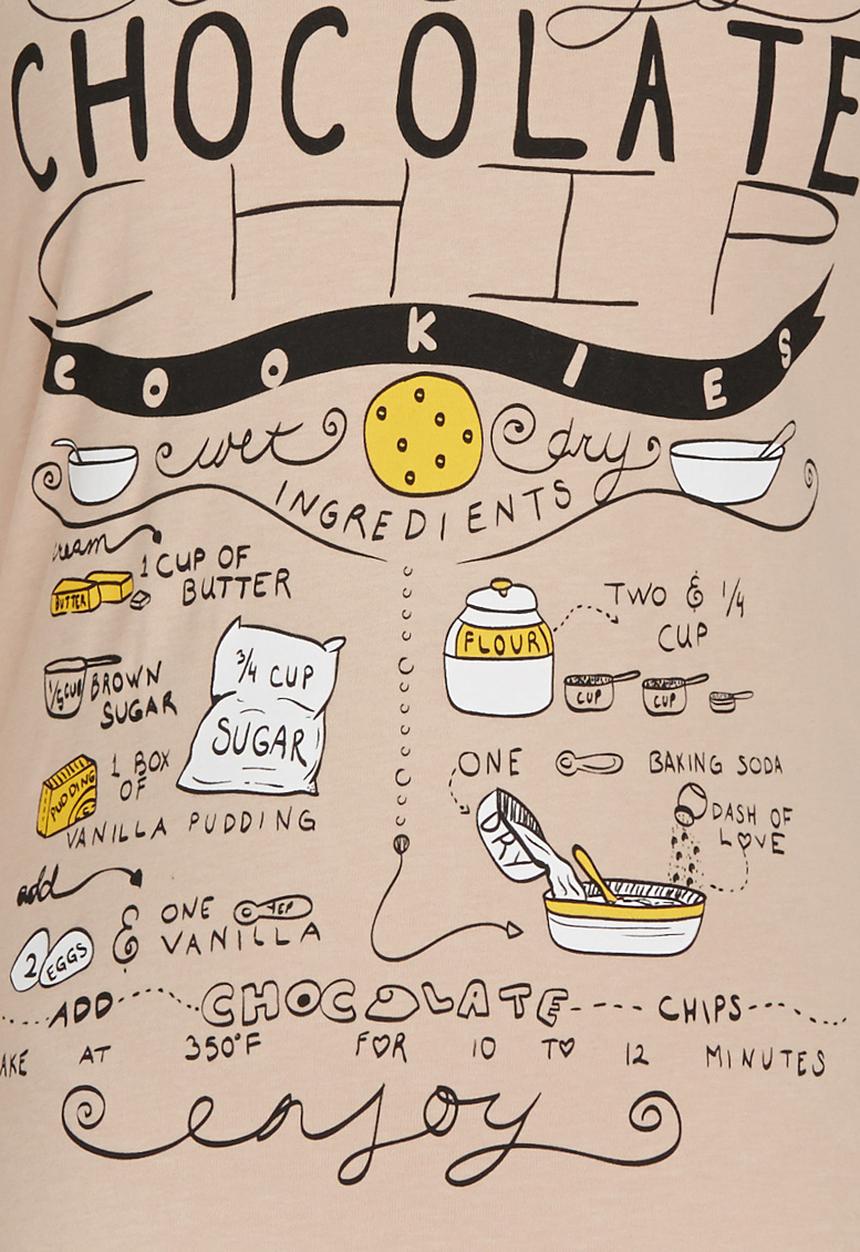 CHOCOLATE
CHIP
COOKIES
wet dry
INGREDIENTS
cream
1 CUP OF
BUTTER
BUTTER
3/4 CUP
SUGAR
BROWN
SUGAR
PUDDING
1 BOX
OF
VANILLA PUDDING
add
2 EGGS
& ONE TSP
VANILLA
FLOUR
TWO & 1/4
CUP
CUP CUP
ONE BAKING SODA
DRY
DASH OF
LOVE
ADD CHOCOLATE CHIPS
AKE AT 350°F FOR 10 TO 12 MINUTES
enjoy